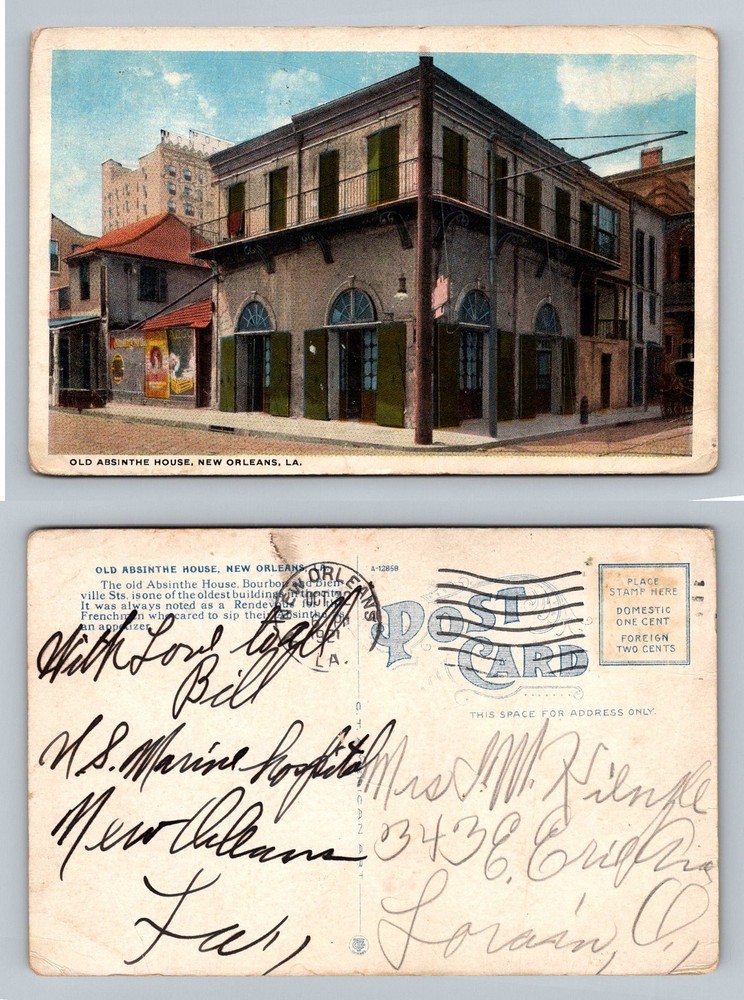 OLD ABSINTHE HOUSE, NEW ORLEANS, LA.
OLD ABSINTHE HOUSE, NEW ORLEANS, LA.
The old Absinthe House. Bourbon and Bien-
ville Sts. is one of the oldest buildings in the city.
It was always noted as a Rendevous for the
Frenchman who cared to sip their Absinthe
an appetizer.
With Love to all
Bill
U.S. Marine Hospital
New Orleans
La.,
A-12858
NEW ORLEANS
OCT
1921
LA.
POST
CARD
PLACE
STAMP HERE
DOMESTIC
ONE CENT
FOREIGN
TWO CENTS
THIS SPACE FOR ADDRESS ONLY.
Mrs
343 E. Erie
Lorain, O,